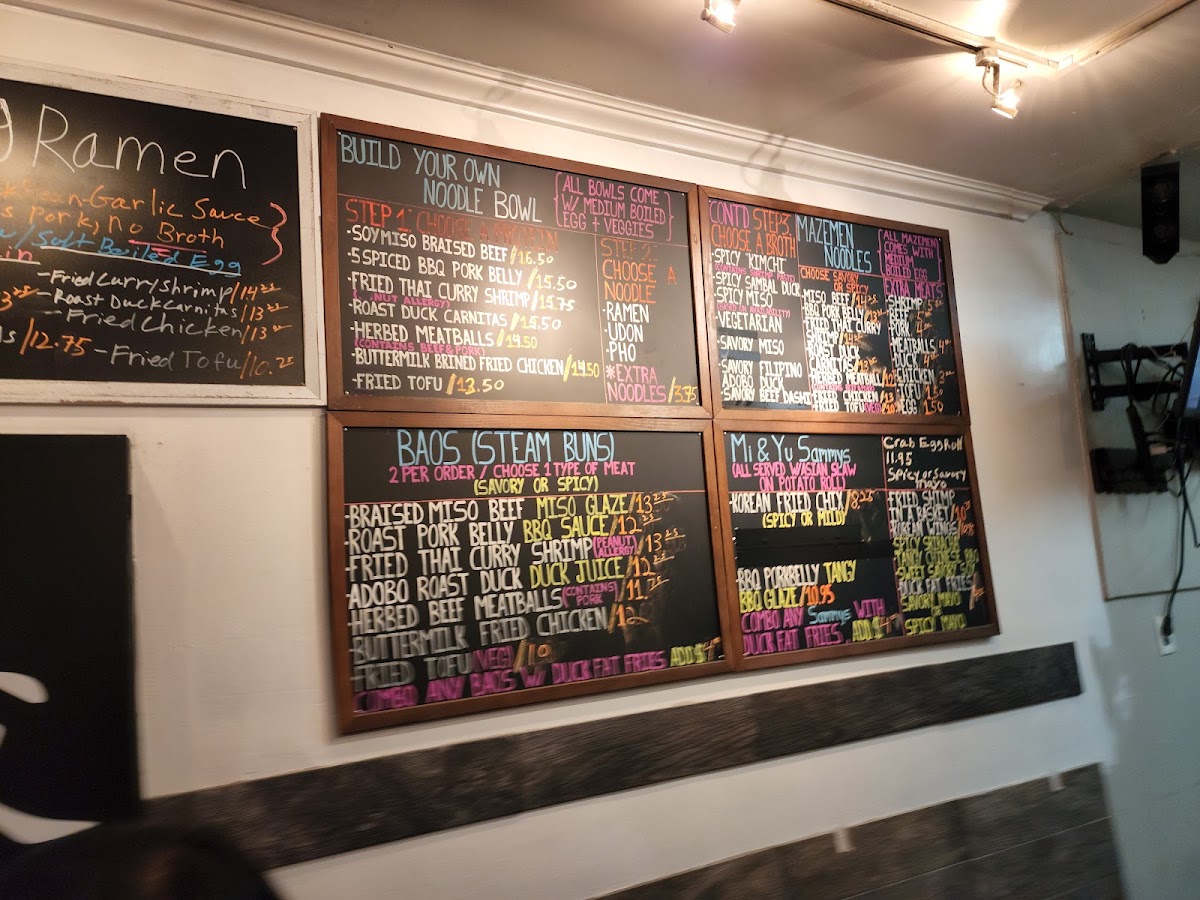 Ramen
Garlic Sauce
Pork, no Broth
Soft Boiled Egg
-Fried Curry Shrimp/14
-Roast Duck Carnitas/13
-Fried Chicken/13
/12.75 -Fried Tofu/10.25
BUILD YOUR OWN
NOODLE BOWL
ALL BOWLS COME
W/ MEDIUM BOILED
EGG + VEGGIES
STEP 1: CHOOSE A PROTEIN
-SOY MISO BRAISED BEEF/16.50
-5 SPICED BBQ PORK BELLY/15.50
-FRIED THAI CURRY SHRIMP/15.75
(NUT ALLERGY)
-ROAST DUCK CARNITAS/15.50
-HERBED MEATBALLS/14.50
(CONTAINS BEEF & PORK)
-BUTTERMILK BRINED FRIED CHICKEN/14.50
-FRIED TOFU/13.50
STEP 2:
CHOOSE A
NOODLE
-RAMEN
-UDON
-PHO
*EXTRA
NOODLES/3.75
CONT'D STEP 3:
CHOOSE A BROTH
-SPICY "KIMCHI"
-SPICY SAMBAL DUCK
-SPICY MISO
-VEGETARIAN
-SAVORY MISO
-SAVORY FILIPINO
ADOBO DUCK
-SAVORY BEEF DASHI
MAZEMEN
NOODLES
CHOOSE SAVORY
OR SPICY
MISO BEEF
BBQ PORK BELLY
FRIED THAI CURRY
SHRIMP
ROAST DUCK
CARNITAS
HERBED MEATBALL
FRIED CHICKEN
FRIED TOFU
ALL MAZEMEN
COMES WITH
MEDIUM
BOILED EGG
EXTRA MEATS
SHRIMP
BEEF
PORK
MEATBALLS
DUCK
CHICKEN
TOFU
EGG 1.50
BAOS (STEAM BUNS)
2 PER ORDER / CHOOSE 1 TYPE OF MEAT
(SAVORY OR SPICY)
-BRAISED MISO BEEF MISO GLAZE/13.25
-ROAST PORK BELLY BBQ SAUCE/12.25
-FRIED THAI CURRY SHRIMP (PEANUT ALLERGY)/13.25
-ADOBO ROAST DUCK DUCK JUICE/12
-HERBED BEEF MEATBALLS (CONTAINS PORK)/11.75
-BUTTERMILK FRIED CHICKEN/12
-FRIED TOFU VEG/10
COMBO ANY BAOS W/ DUCK FAT FRIES ADD $4
Mi & Yu Sammys
(ALL SERVED W/ASIAN SLAW
ON POTATO ROLL)
-KOREAN FRIED CHIX/8.25
(SPICY OR MILD)
-BBQ PORKBELLY TANGY
BBQ GLAZE/10.95
COMBO ANY Sammys WITH
DUCK FAT FRIES ADD $4
Crab Egg Roll
11.95
Spicy or Savory
mayo
FRIED SHRIMP
IN A BASKET/10
KOREAN WINGS
DUCK FAT FRIES
SAVORY MAYO
OR
SPICY MAYO